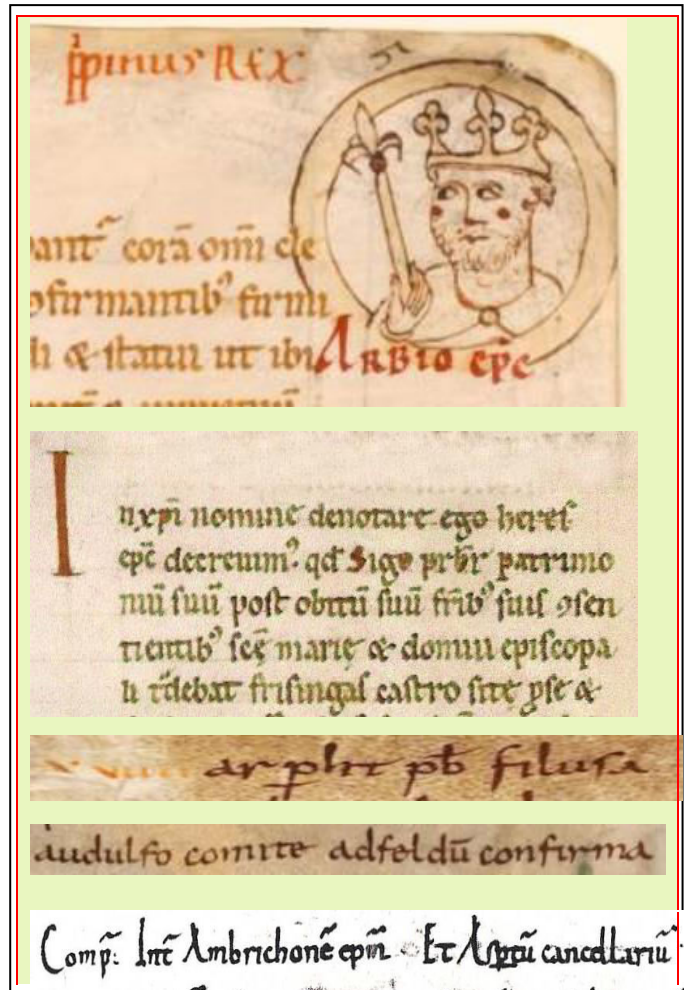 pͥpinus REX
ant᷑ corā om̅i cle
ꝯfirmantibꝰ firmi
li & statui ut ibi ARBIO ep̅c
In xp̅i nomine denotare ego heres
ep̅c decreuimꝰ qd̕ Sigo prb̅r patrimo
niū suū post obitū suū fr̅ibꝰ suis ꝯsen
tientibꝰ sc̅ę marię & domui episcopa
li t̅debat frisingas castro site ꝑse &
arꝑht pb̅ filusa
audulfo comite adfeldū confirma
Comp̅: Int̅ Ambrichonē ep̅m Et cancellariū